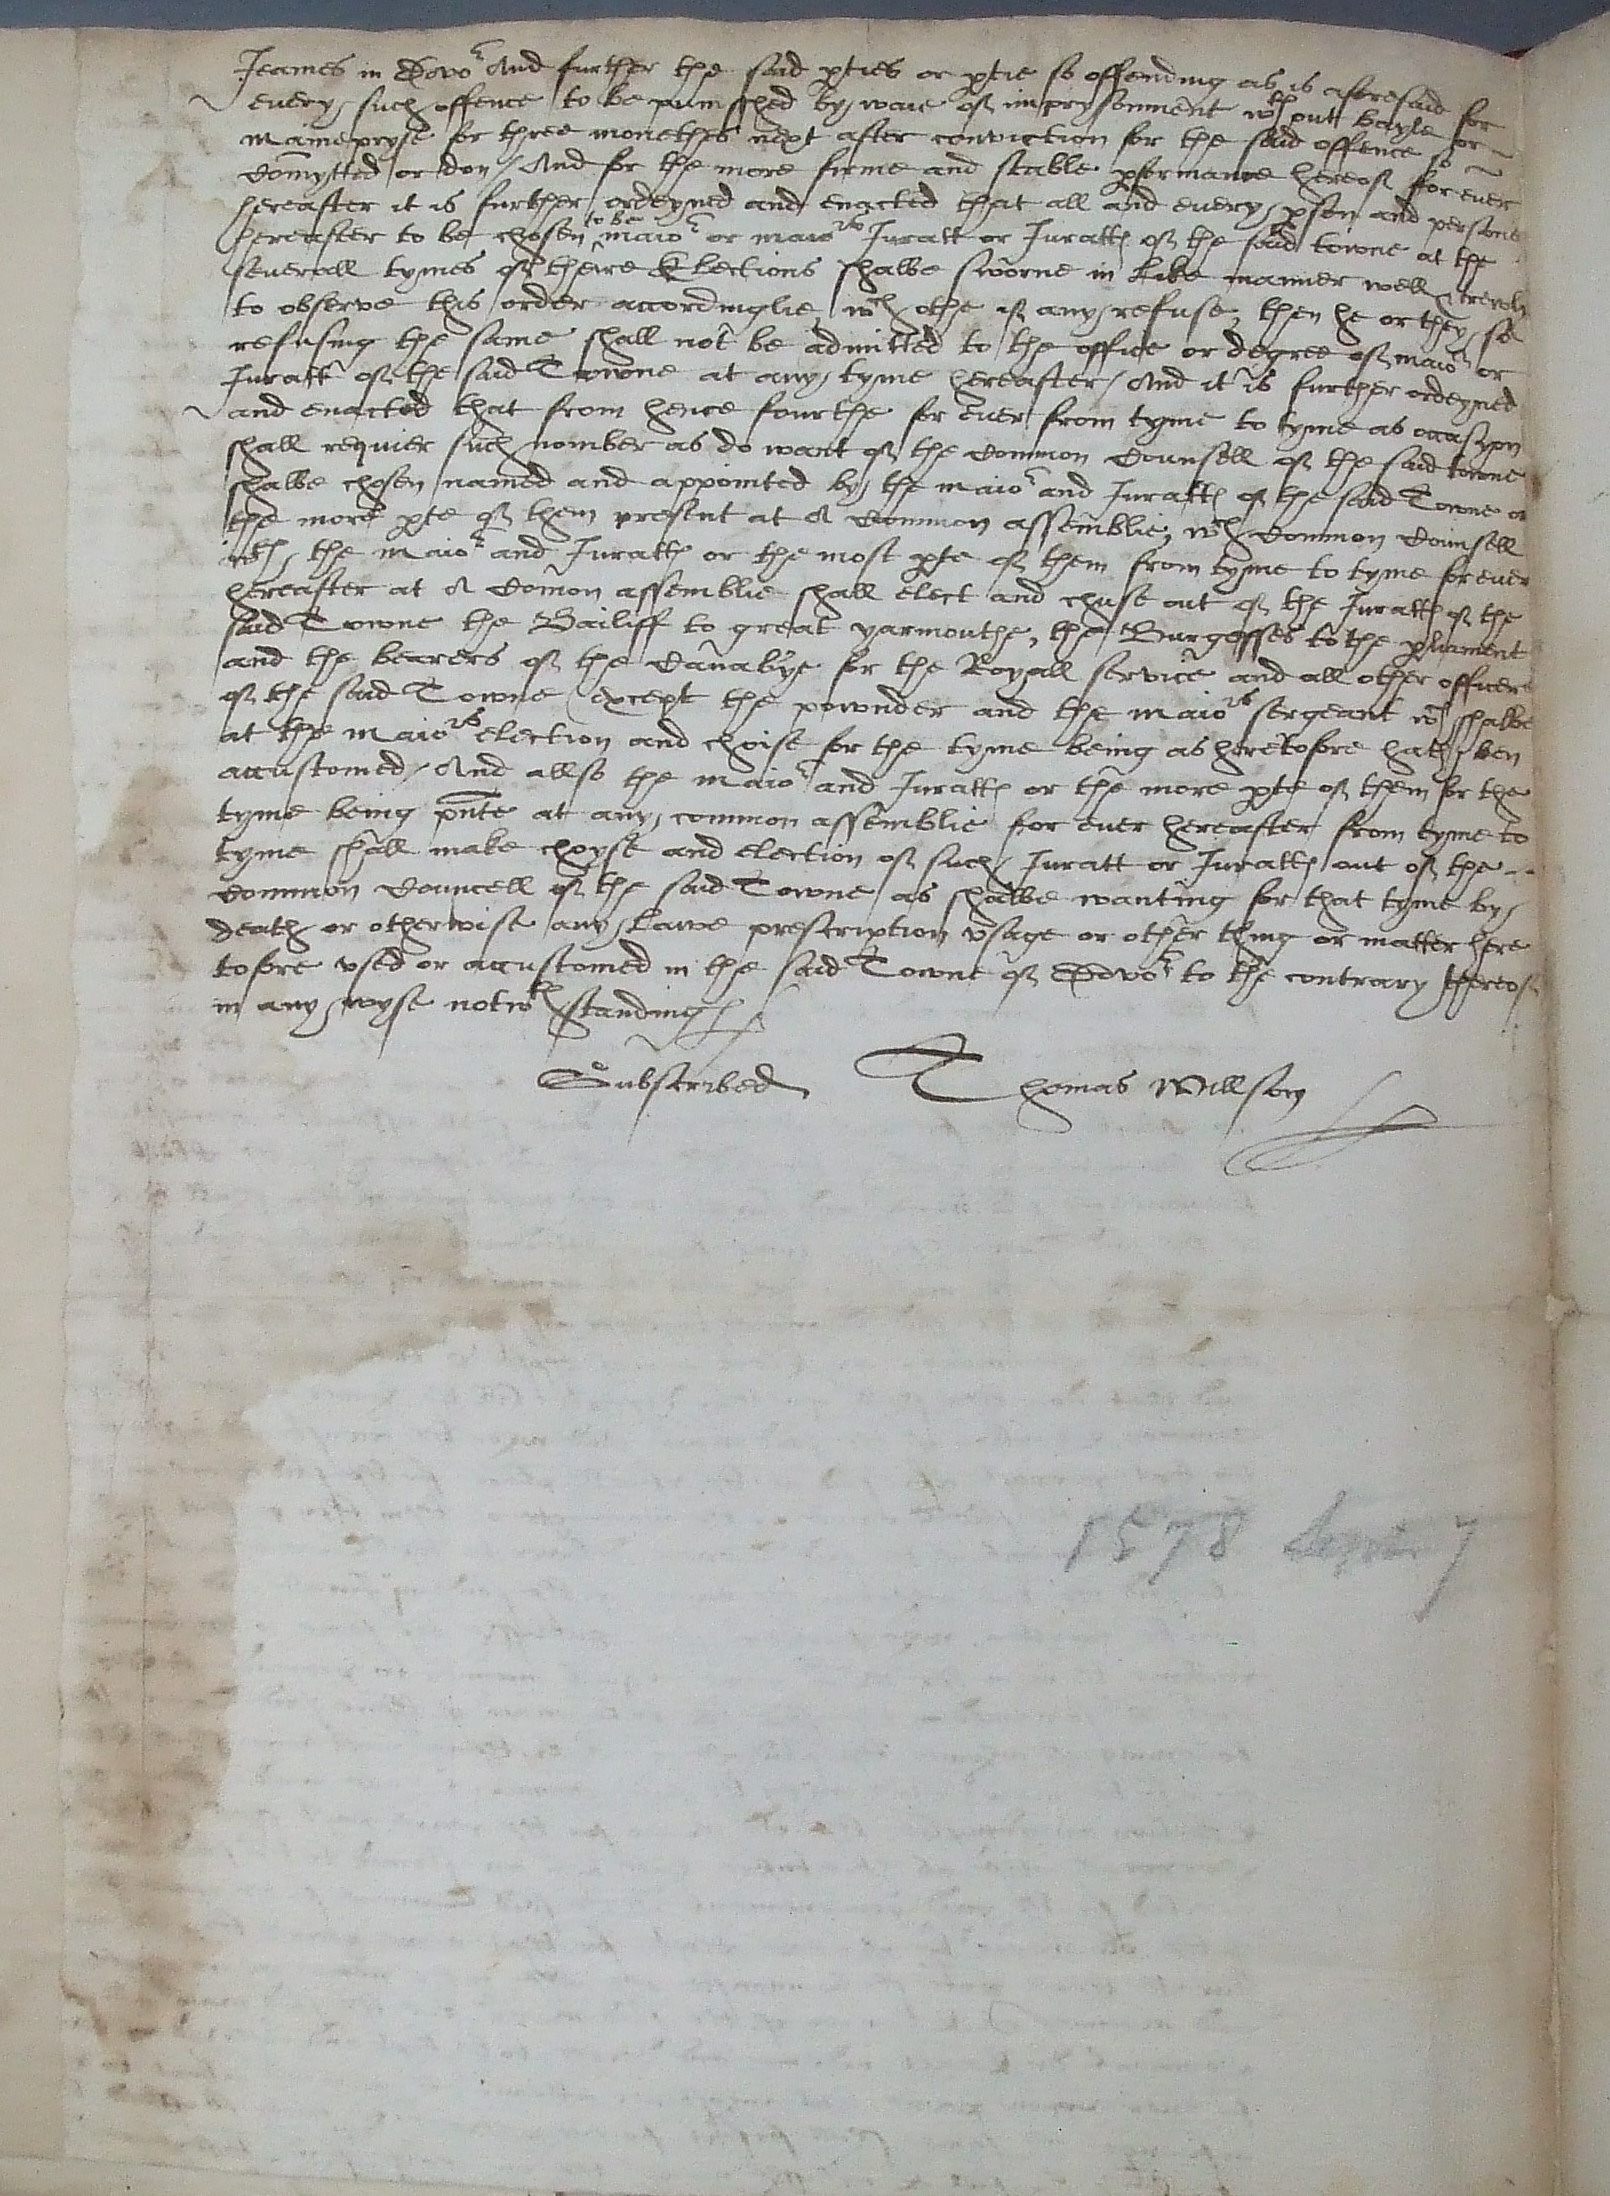 Jeames in Dovor And further the said pties or ptie so offending as is aforesaid for
every such offence to be punisshed by waie of imprysonment wth out bayle or
mainepryse for three monethes next after conviction for the said offence so
comytted or don / And for the more firme and stable pformance hereof for ever
hereafter it is further ordeyned and enacted that all and every pson and persons
to be
hereafter to be chosen maior or maiors Juratt or Juratts of the said towne at the
severall tymes of theire Elections shalbe sworne in like manner well & trewly
to observe this order accordinglie, wch othe if any refuse, then he or they so
refusing the same shall not be admitted to the office or degree of maior or
Juratt of the said Towne at any tyme hereafter / And it is further ordeyned
and enacted that from hence fourthe for ever from tyme to tyme as occasyon
shall requier such nomber as do want of the common Counsell of the said towne
shalbe chosen named and appointed by the maior and Juratts of the said Towne or
the more pte of them present at a common assemblie, wch common Counsell
wth the maior and Juratts or the most pte of them from tyme to tyme for ever
hereafter at a comon assemblie shall elect and chuse out of the Juratts of the
said Towne the Bailiff to great yarmouthe, the Burgesses to the pliament
and the bearers of the Canabye for the Royall service and all other officers
of the said Towne (except the pownder and the maiors sergeant wch shalbe
at the maiors election and choise for the tyme being as heretofore hath ben
accustomed / And allso the maior and Juratts or the more pte of them for the
tyme being pnte at any common assemblie for ever hereafter from tyme to
tyme shall make choyse and election of such Juratt or Juratts out of the
common Councell of the said Towne as shalbe wanting for that tyme by
death or otherwise any Lawe prescription vsage or other thing or matter here
tofore vsed or accustomed in the said Towne of Dovor to the contrary thereof
in any wyse notwth standing
Subscribed Thomas Willson
1578